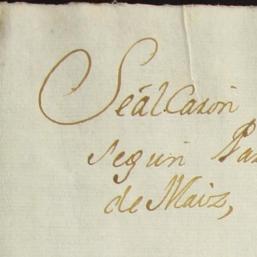 Seál Caxon
segun Pa
de Maiz,